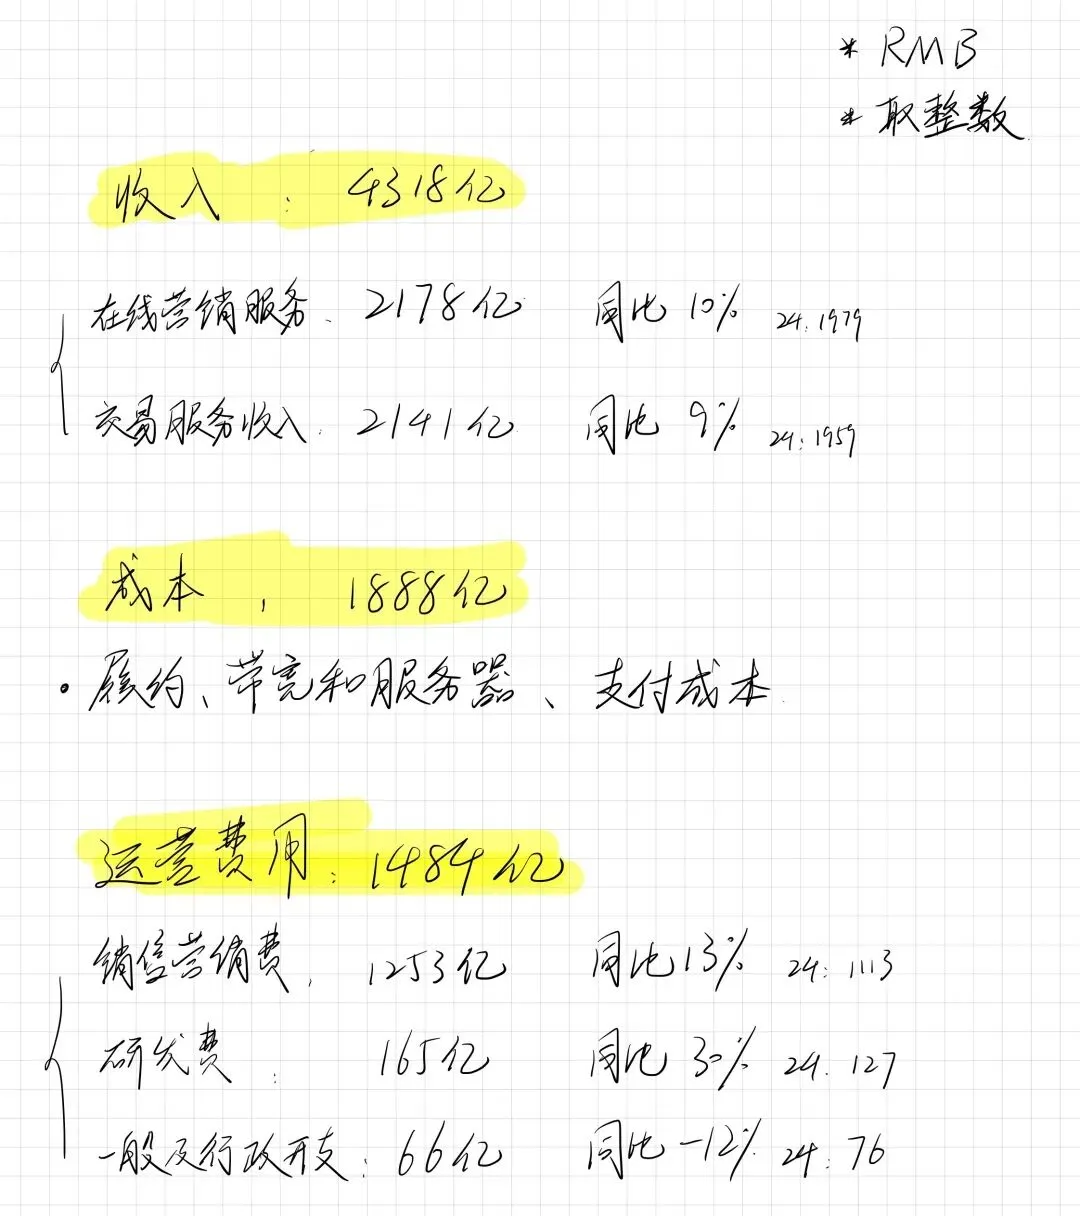 * RMB
* 取整数
收入: 4318亿
在线营销服务. 2178亿 同比 10% 24.1979
交易服务收入: 2141亿 同比 9% 24:1959
成本, 1888亿
· 履约、带宽和服务器、支付成本.
运营费用: 1484亿
销售营销费, 1253亿 同比13% 24: 1113
研发费: 165亿 同比 30% 24. 127
一般及行政开支: 66亿 同比 -12% 24: 76